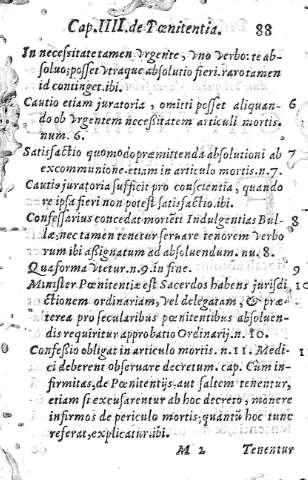 Cap. IIII. de Pœnitentia. 88
In necessitate tamen vrgente, vno verbo: te ab-
soluo; posset vtraque absolutio fieri. raro tamen
id continget. ibi.
Cautio etiam juratoria, omitti posset aliquan- 6
do ob vrgentem necessitatem articuli mortis.
num. 6.
Satisfactio quomodo præmittenda absolutioni ab 7
excommunione etiam in articulo mortis. n. 7.
Cautio juratoria sufficit pro conscientia, quando
re ipsa fieri non potest satisfactio. ibi.
Confessarius concedat morieti Indulgentias Bul- 8
læ, nec tamen tenetur seruare tenorem verbo
rum ibi assignatum ad absoluendum. nu. 8.
Qua forma vtetur. n. 9. in fine. 9
Minister Pœnitentiæ est Sacerdos habens jurisdi 10
ctionem ordinariam, vel delegatam, & præ
terea pro secularibus pœnitentibus absoluen-
dis requiritur approbatio Ordinarij. n. 10.
Confessio obligat in articulo mortis. n. 11. Medi- 1
ci deberent obseruare decretum. cap. Cùm in-
firmitas, de Pœnitentijs, aut saltem tenentur,
etiam si excusarentur ab hoc decreto, monere
infirmos de periculo mortis; quantũ hoc tunc
referat, explicatur. ibi.
M 2 Tenentur